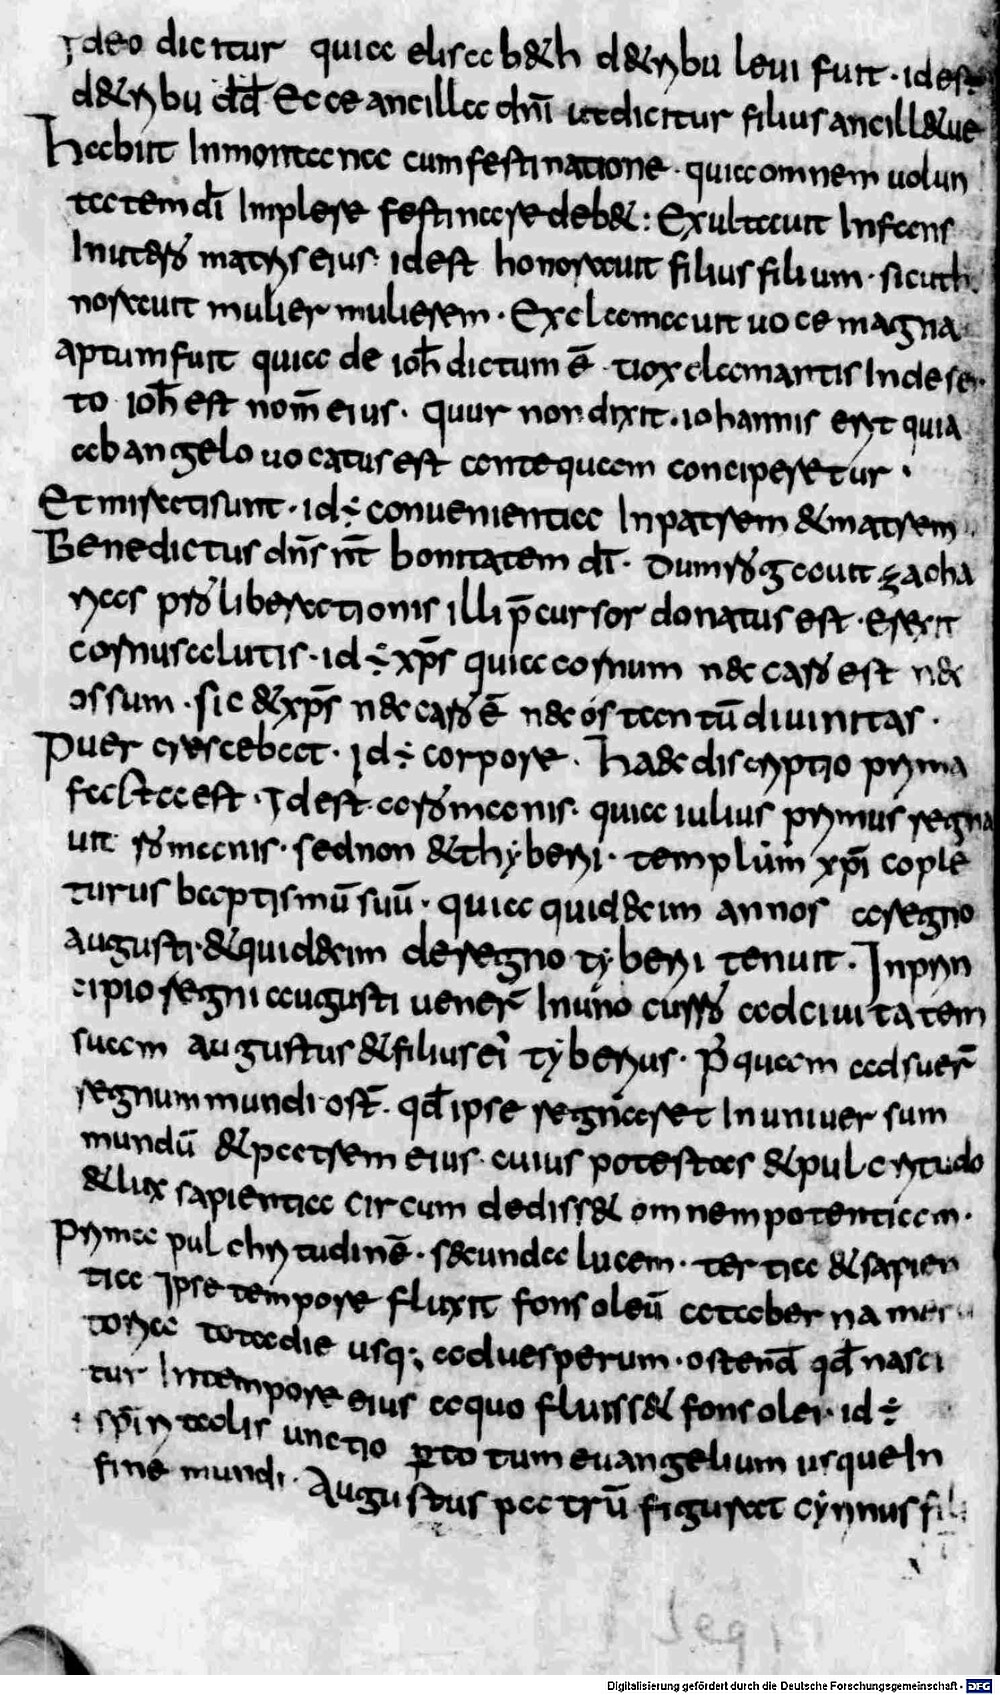 Ideo dicitur quia elisabeth de tribu leui fuit · id est
de tribu dd̄ Ecce ancilla dn̄i ut dicitur filius ancillae tuae
habiit In montana cum festinatione · quia omnem uolun
tatem dī Implere festinare debet : Exultauit Infans
In utero matris eius · id est honorauit filius filium · sicut ho
norauit mulier mulierem · Exclamauit uoce magna
aptum fuit quia de ioh̄ dictum ē uox clamantis In deser
to ioh̄ est nom̄ eius · quur non dixit · iohannis erit quia
ab angelo uocatus est antequam conciperetur ·
Et mirati sunt · id ÷ conuenientia In patrem & matrem
Benedictus dn̄s n̄t bonitatem dī · Dum rogauit zacha
rias pro liberationis illi p̄cursor donatus est · Erexit
cornu salutis · id ÷ xp̄s quia cornum nec caro est nec
ossum · sic & xp̄s nec caro ē nec os tantū diuinitas ·
Puer crescebat · id ÷ corpore · haec discriptio prima
facta est · Id est romanis · quia iulius primus regna
uit romanis · sed non & thyberi · templum xp̄i cōple
turus baptismū suū · quia quindecim annos a regno
augusti · & quindecim de regno tyberi tenuit · In prin
cipio regni augusti uener̄ In uno curro ad ciuitatem
suam augustus & filius eī tyberius · P̄ quam adsuer̄
regnum mundi · ost̄ · qd̄ ipse regnaret In uniuersum
mundū & patrem eius · cuius potestas & pulcritudo
& lux sapientia circum dedisset omnem potentiam ·
Prima pulchritudinē · secunda lucem · tertia & sapien
tia Ipse tempore fluxit fons oleū a taberna meri
toria tota die usq; ad uesperum · ostend̄ qd̄ nasci
tur In tempore eius a quo fluisset fons olei · id ÷
sp̄italis unctio p̄ totum euangelium usque In
fine mundi · Augustus patrū figurat cyrinus fili